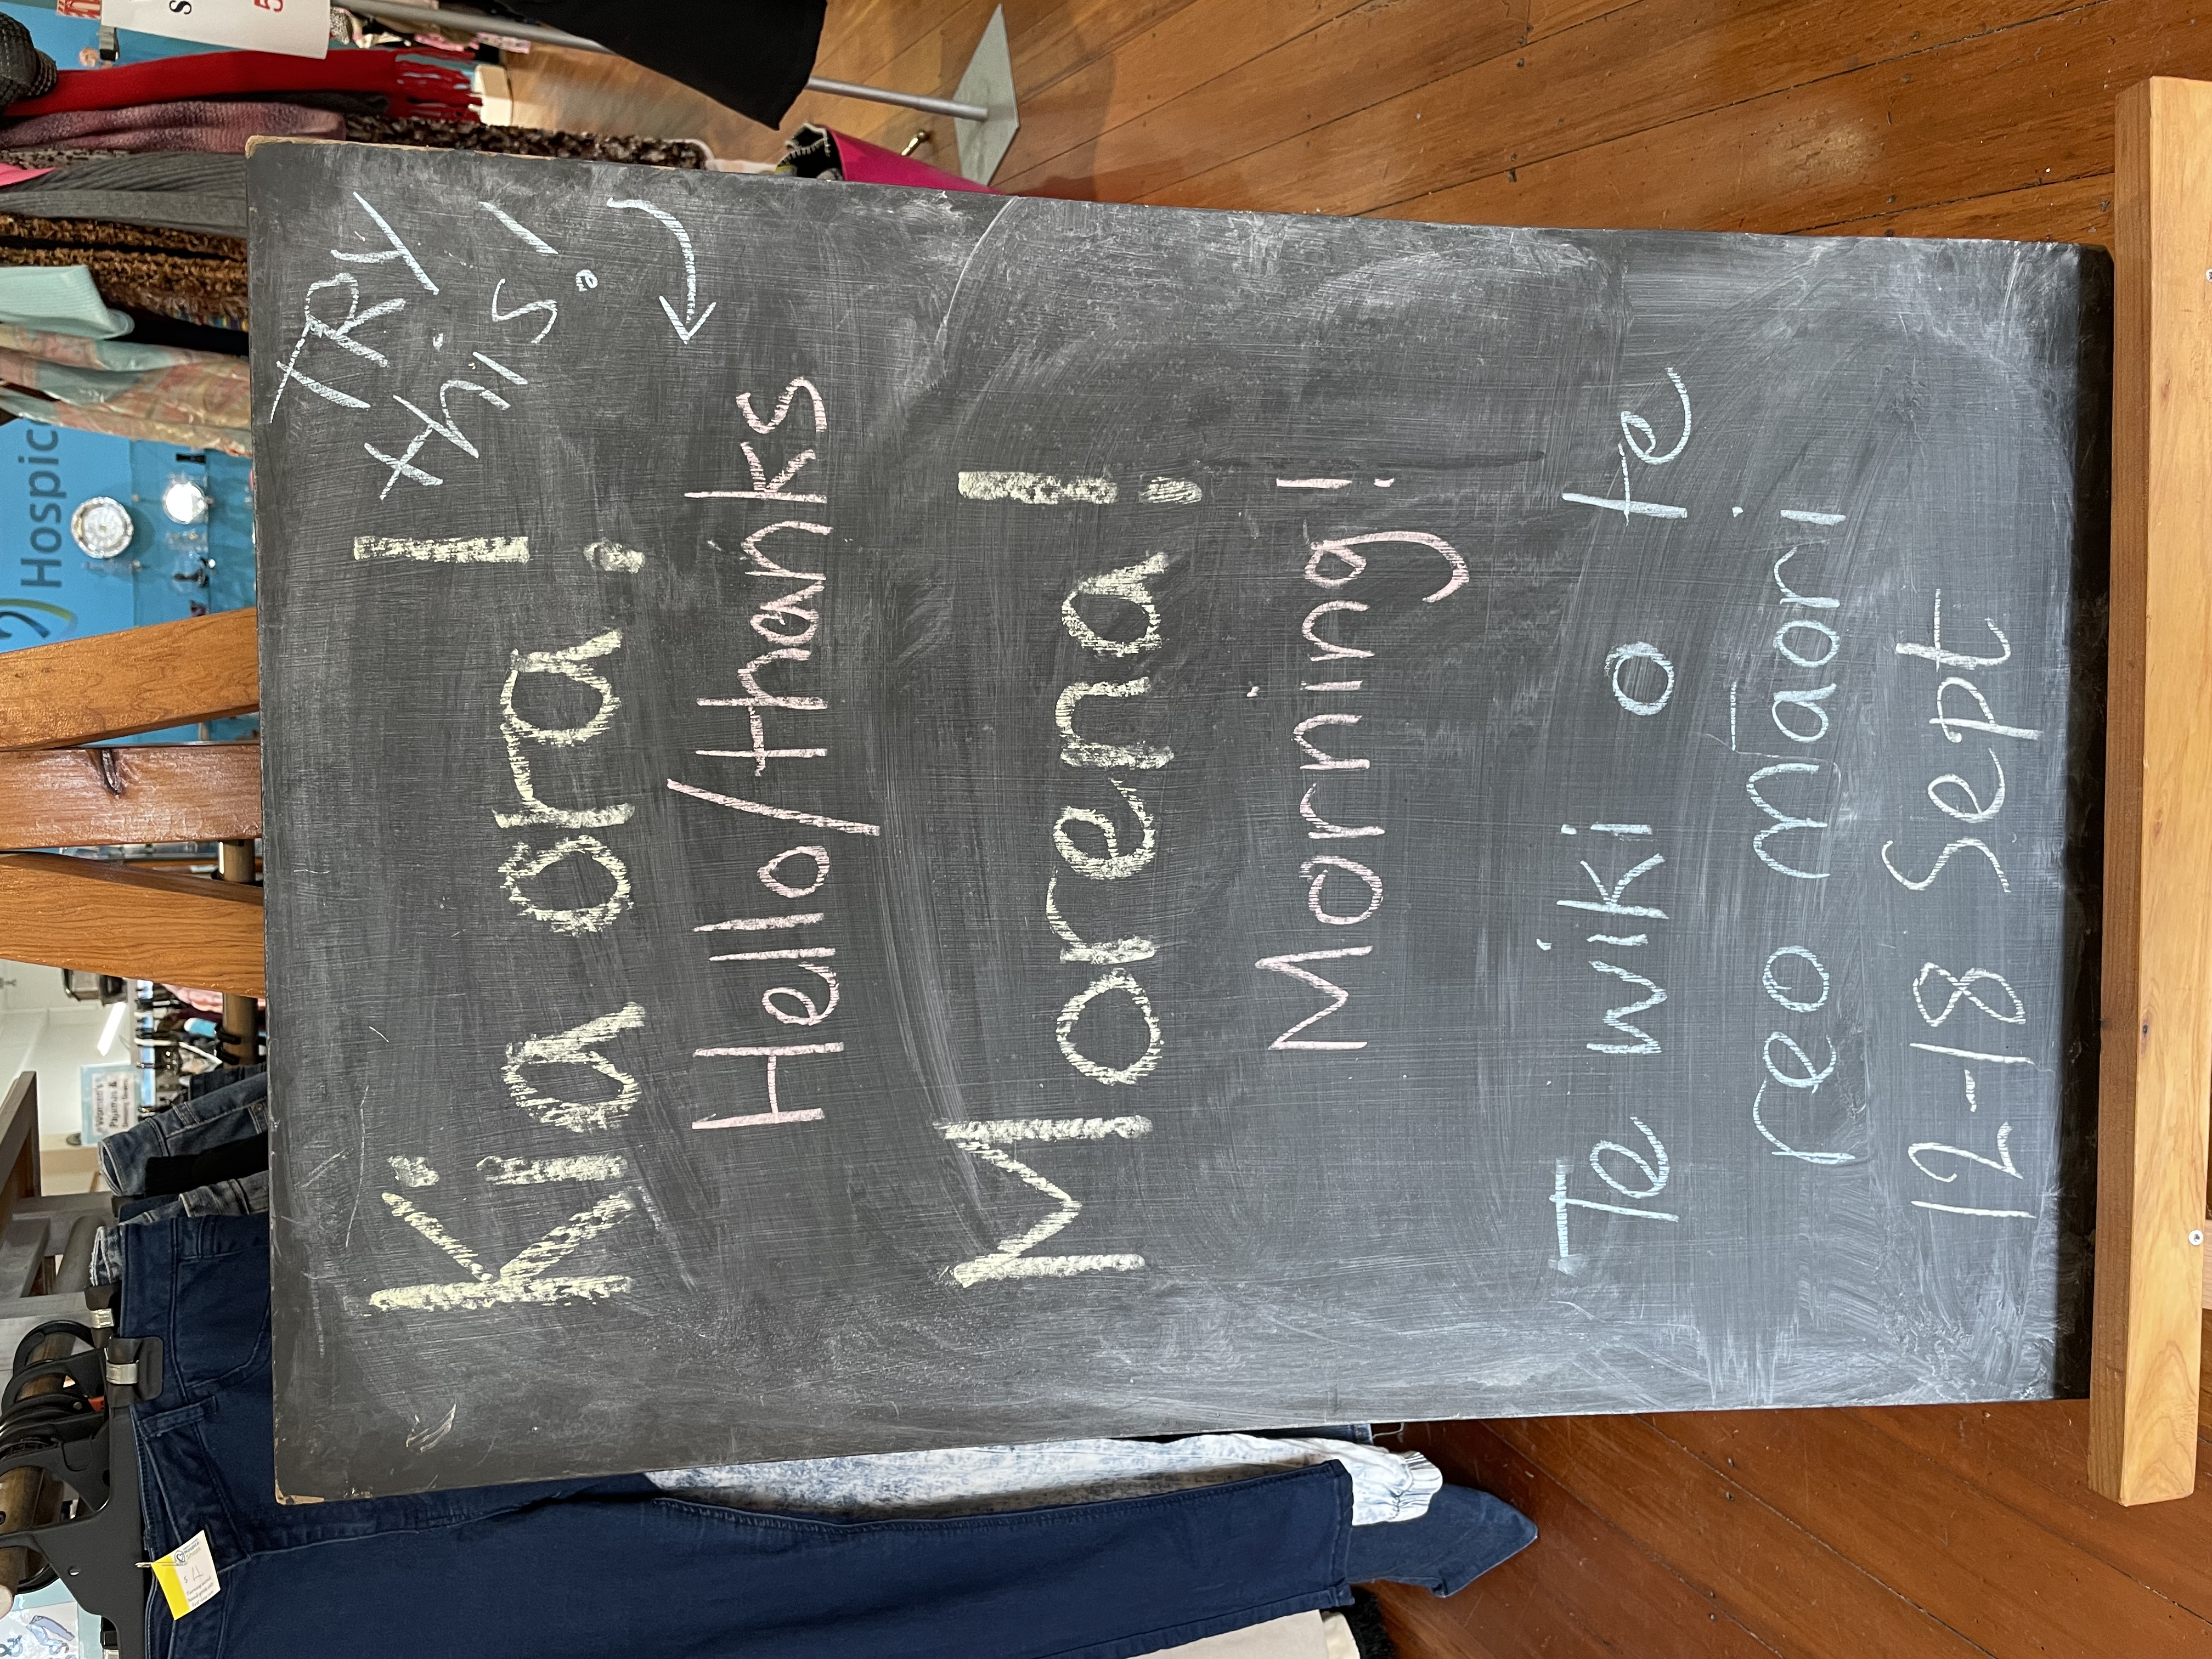 TRY
this!
Kia ora!
Hello/thanks
Morena!
Morning!
Te wiki o te
reo Māori
12-18 Sept
Hospice
Women's
Pajamas &
$4